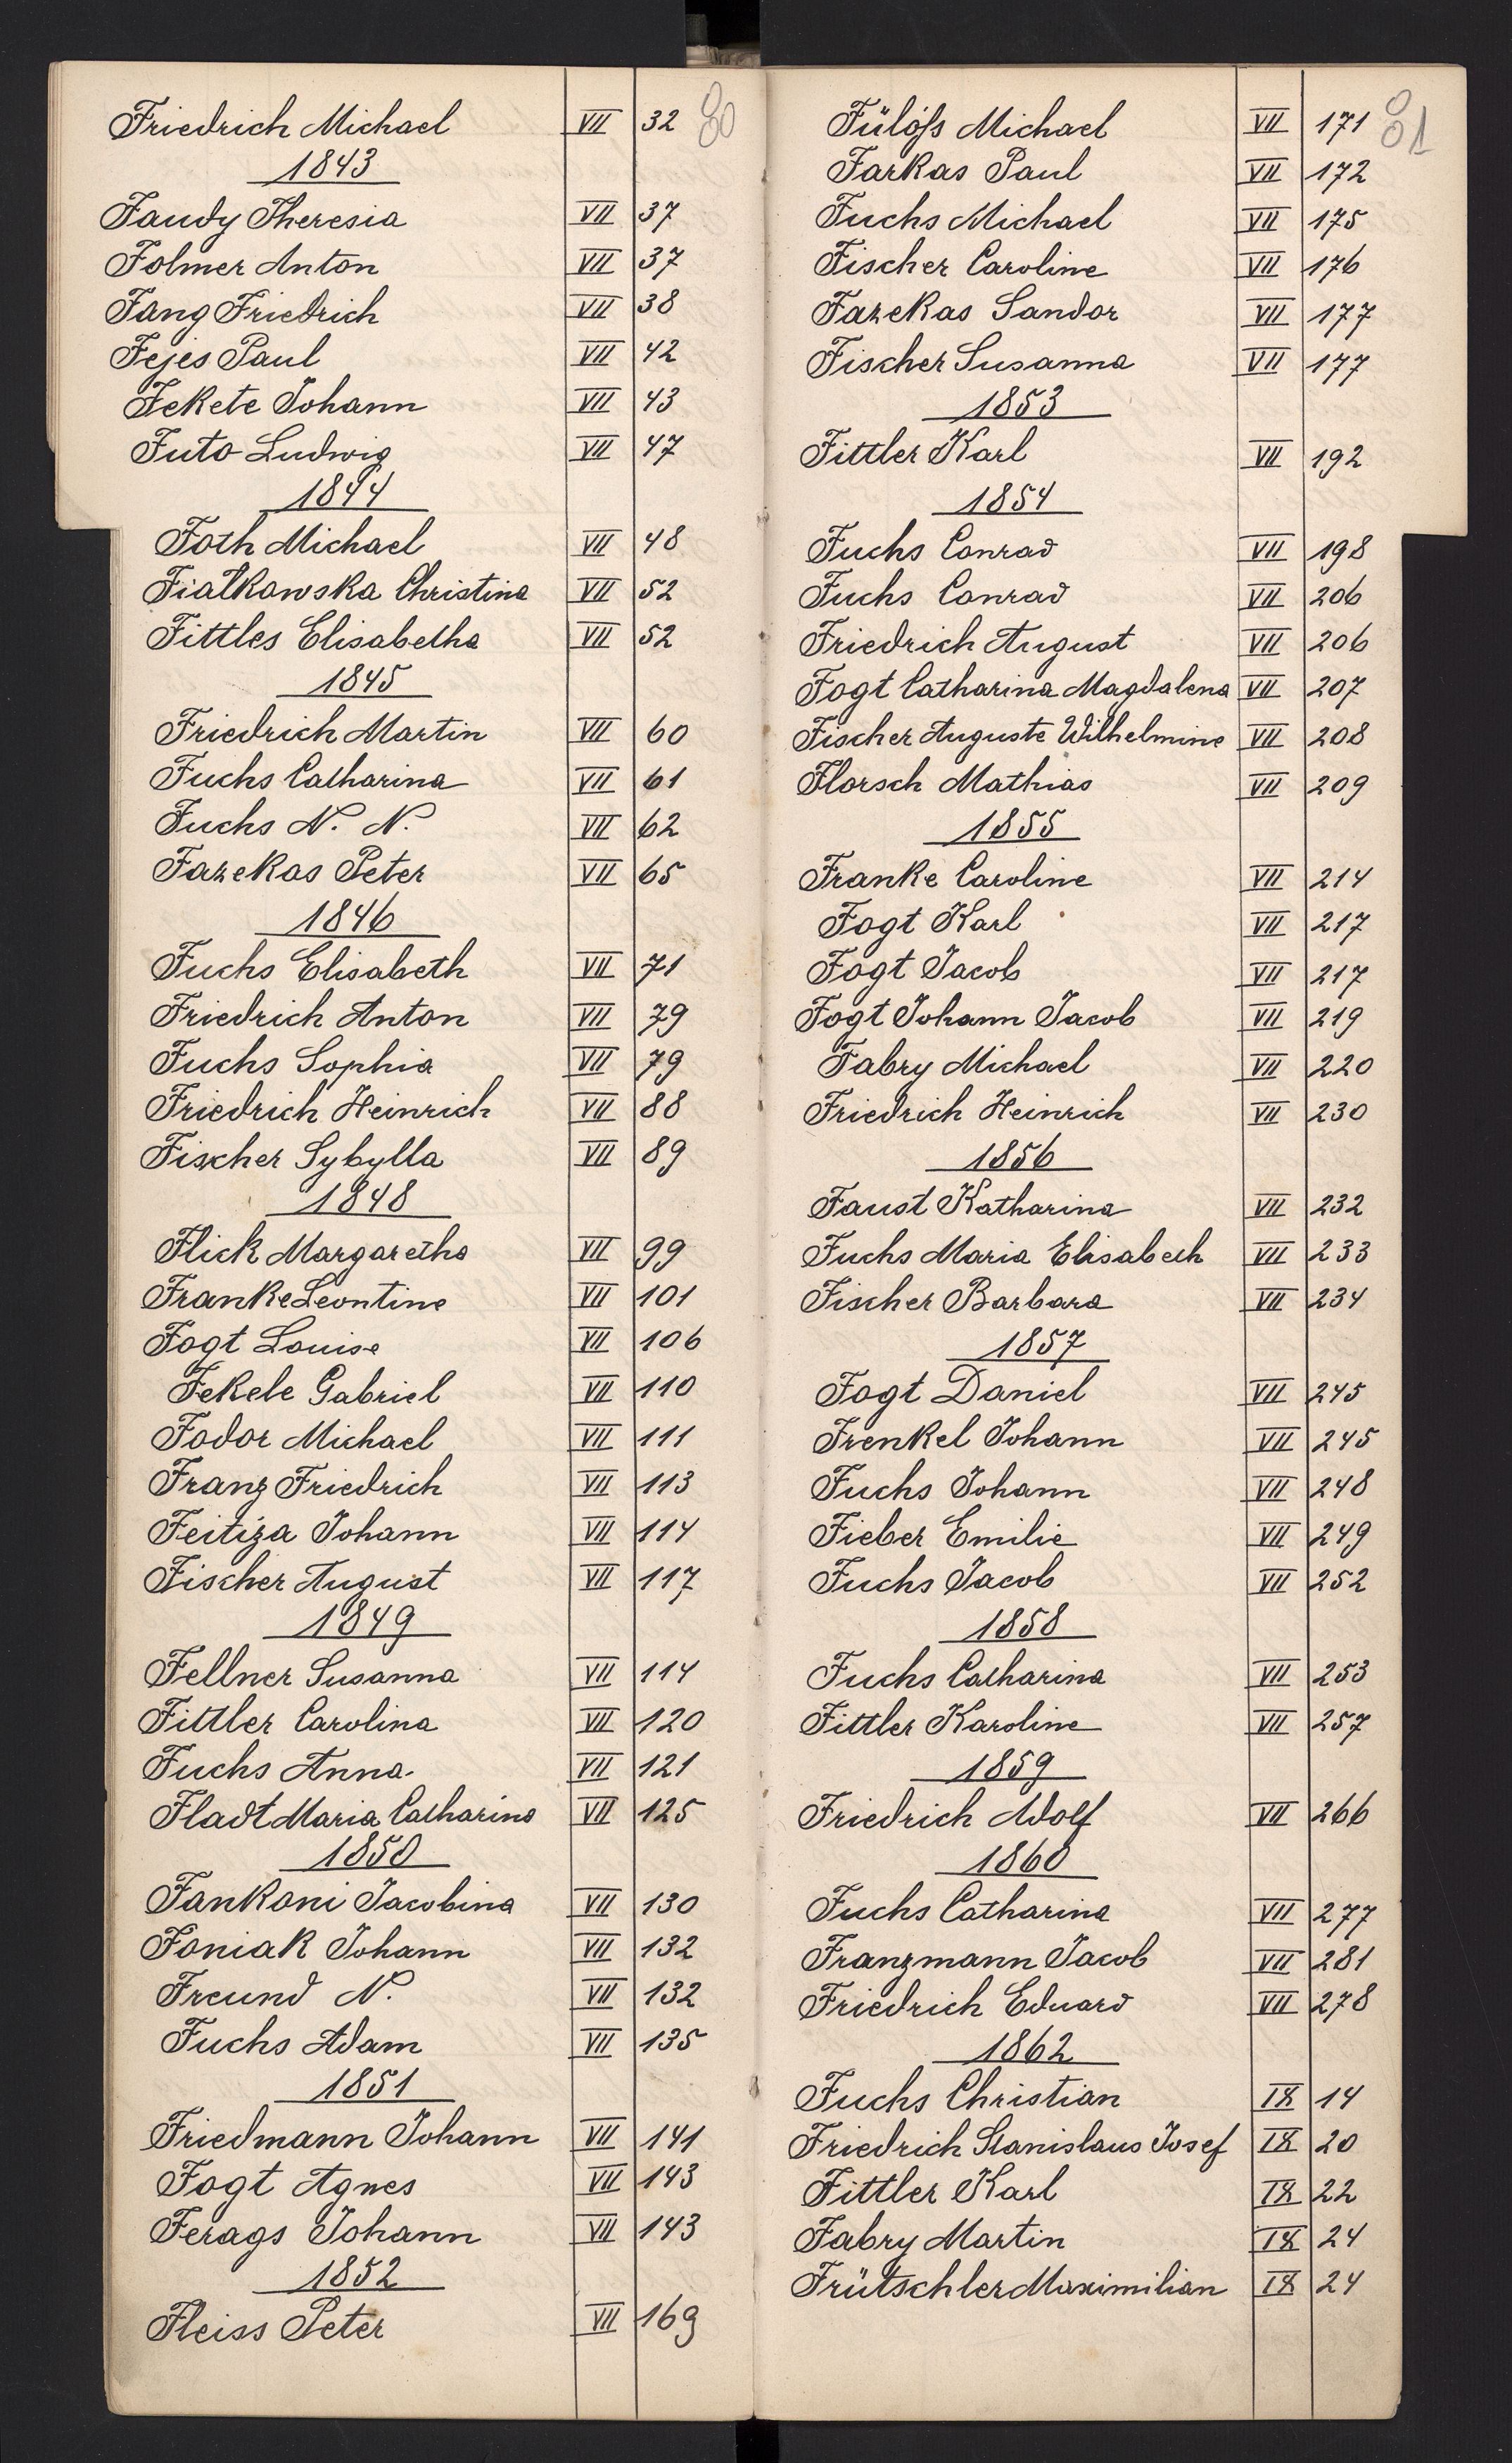 Friedrich Michael VII 32 80
1843
Faudy Theresia VII 37
Folmer Anton VII 37
Fang Friedrich VII 38
Fejes Paul VII 42
Fekete Johann VII 43
Futo Ludwig VII 47
1844
Foth Michael VII 48
Fialkowska Christina VII 52
Fittles Elisabetha VII 52
1845
Friedrich Martin VII 60
Fuchs Catharina VII 61
Fuchs N. N. VII 62
Fazekas Peter VII 65
1846
Fuchs Elisabeth VII 71
Friedrich Anton VII 79
Fuchs Sophia VII 79
Friedrich Heinrich VII 88
Fischer Sybylla VII 89
1848
Flick Margaretha VII 99
Franke Leontine VII 101
Fogt Louise VII 106
Fekete Gabriel VII 110
Fodor Michael VII 111
Franz Friedrich VII 113
Feitiza Johann VII 114
Fischer August VII 117
1849
Fellner Susanna VII 114
Fittler Carolina VII 120
Fuchs Anna VII 121
Fladt Maria Catharina VII 125
1850
Fankoni Jacobina VII 130
Foniak Johann VII 132
Freund N. VII 132
Fuchs Adam VII 135
1851
Friedmann Johann VII 141
Fogt Agnes VII 143
Ferags Johann VII 143
1852
Fleiss Peter VII 169
Fülöss Michael VII 171 81
Farkas Paul VII 172
Fuchs Michael VII 175
Fischer Caroline VII 176
Fazekas Sandor VII 177
Fischer Susanna VII 177
1853
Fittler Karl VII 192
1854
Fuchs Conrad VII 198
Fuchs Conrad VII 206
Friedrich August VII 206
Fogt Catharina Magdalena VII 207
Fischer Auguste Wilhelmine VII 208
Florsch Mathias VII 209
1855
Franke Caroline VII 214
Fogt Karl VII 217
Fogt Jacob VII 217
Fogt Johann Jacob VII 219
Fabry Michael VII 220
Friedrich Heinrich VII 230
1856
Faust Katharina VII 232
Fuchs Maria Elisabeth VII 233
Fischer Barbara VII 234
1857
Fogt Daniel VII 245
Frenkel Johann VII 245
Fuchs Johann VII 248
Fieber Emilie VII 249
Fuchs Jacob VII 252
1858
Fuchs Catharina VII 253
Fittler Karoline VII 257
1859
Friedrich Adolf VII 266
1860
Fuchs Catharina VII 277
Franzmann Jacob VII 281
Friedrich Eduard VII 278
1862
Fuchs Christian IX 14
Friedrich Stanislaus Josef IX 20
Fittler Karl IX 22
Fabry Martin IX 24
Frütschler Maximilian IX 24